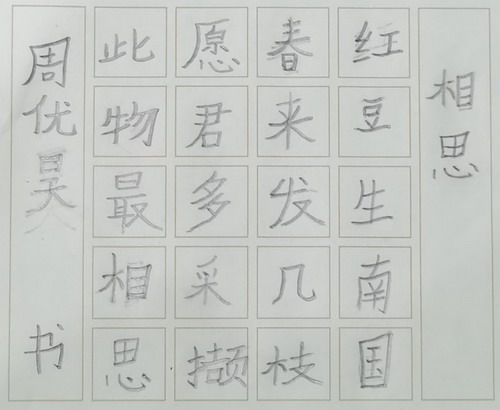 相思
红豆生南国
春来发几枝
愿君多采撷
此物最相思
周优昊 书